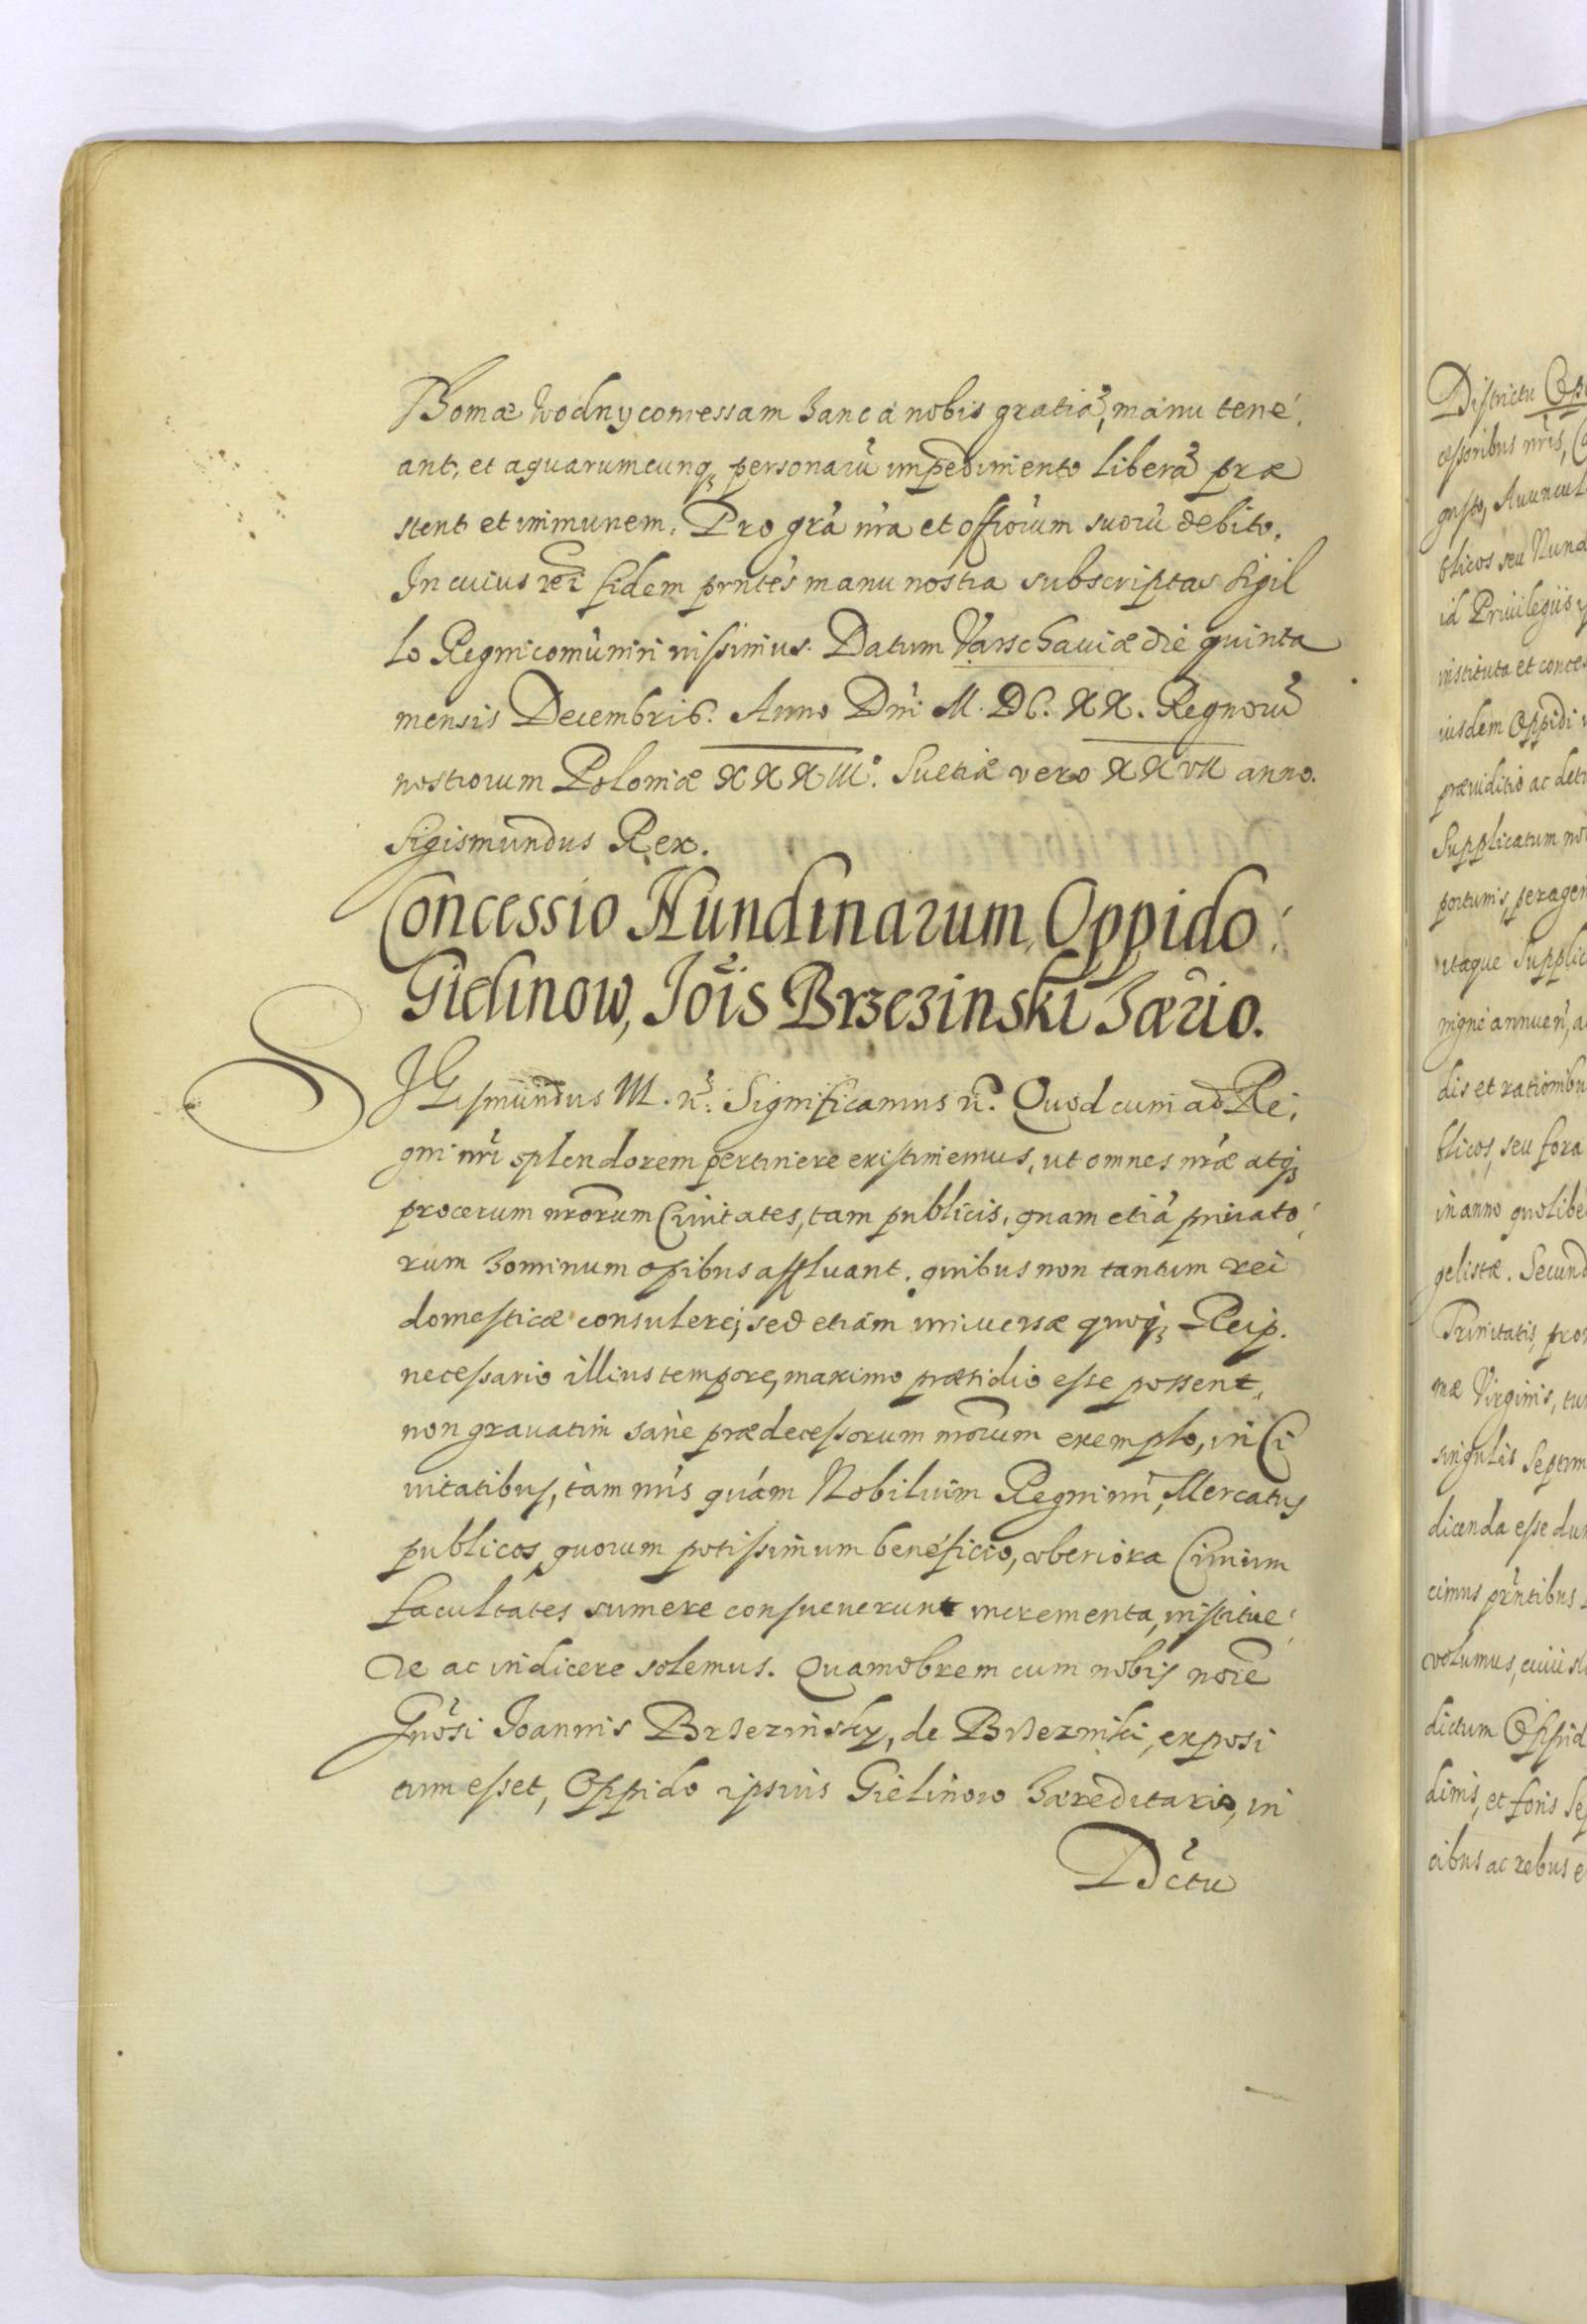 Thomæ Wodny concessam hanc à nobis gratiã, manu tene
ant, et a quarumcunq₃ personarũ impedimento liberã præ
stent et immunem. Pro grã nrã et offiorum suorũ debito.
In cuius rei fidem prntes manu nostra subscriptas Sigil
lo Regni comuniri iussimus. Datum Varschaviæ die quinta
mensis Decembris. Anno Dni M. DC. XX. Regnorũ
nostrorum Poloniæ XXXIII°. Suetiæ vero XXVII anno.
Sigismundus Rex.
Concessio Nundinarum, Oppido
Gielinow, Jois Brzezinski hærio.
SIGismundus III. rc̃. Significamus rc̃. Quod cum ad Re
gni nri splendorem pertinere existimemus, ut omnes nræ atq₃
procerum nrorum Civitates, tam publicis, quam etiã privato
rum hominum opibus affluant. quibus non tantum rei
domesticæ consulere, sed etiam universæ quoq₃ Reip.
necessario illius tempore, maximo præsidio esse possent,
non gravatim sanè prædecessorum nrorum exemplo, in Ci
vitatibus, tàm nris quám Nobilium Regni nri, Mercatus
publicos, quorum potissimum beneficio, uberiora Civium
facultates sumere consueverunt incrementa, institue
re ac indicere solemus. Quamobrem cum nobis noie
Gnosi Joannis Brzezinsky, de Brzezinki, exposi
tum esset, Oppido ipsius Gielinow hæreditario, in
Dctu
Districtu
cessoribus nris,
gusto, Avuncul
blicos seu Nund
id Privilegiis
instituta et conces
iusdem Oppidi
præiuditio ac det
Supplicatum no
portunis, peragen
itaque Supplic
nigne annuen,
dis et rationibu
blicos, seu fora
in anno quolibe
gelistæ. Secund
Trinitatis, pro
mæ Virginis, tu
singulis Septim
dicenda esse du
cimus prntibus
volumus,
dictum Oppid
dinis, et foris Se
cibus ac rebus e